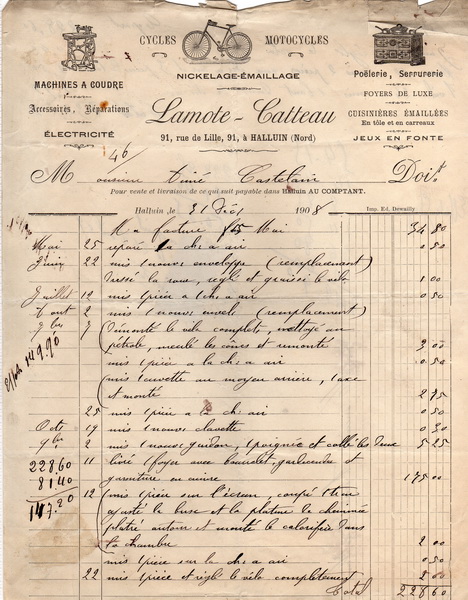 CYCLES MOTOCYCLES
NICKELAGE-ÉMAILLAGE
MACHINES A COUDRE
Accessoires, Réparations
ÉLECTRICITÉ
Poêlerie, Serrurerie
FOYERS DE LUXE
CUISINIÈRES ÉMAILLÉES
En tôle et en carreaux
JEUX EN FONTE
Lamote-Catteau
91, rue de Lille, 91, à HALLUIN (Nord)
46
Monsieur Aimé Castelain Doit
Pour vente et livraison de ce qui suit payable dans Halluin AU COMPTANT.
Halluin, le 31 Déc 1908 Imp. Ed. Dewailly
Ma facture 15 Mai 34 80
Mai 25 réparé la ch. a air 0 50
Juin 22 mis 1 nouv enveloppe (remplacement)
dressé la roue, réglé et graissé le vélo 1 00
Juillet 12 mis 1 pièce a 1 ch. a air 0 50
Aout 2 mis 1 nouv envelo (remplacement)
7bre 7 Démonté le velo complet, nettoyé au
pétrole, meulé les cônes et remonté 3 00
mis 1 pièce a la ch. a air 0 50
mis 1 cuvette au moyeu arrière, 1 axe
et monté 2 75
25 mis 1 pièce a la ch. air 0 50
Octe 19 mis 1 nouv clavette 0 30
9bre 2 mis 1 nouv guidon, 1 poignée et collé les deux 5 25
11 livré 1 foyer avec bourrelet, gardecendre et
garniture en cuivre 175 00
12 mis 1 pièce sur l'écran, coupé
ajusté la buse et la platine de cheminée
platré autour et monté le calorifère dans
la chambre 2 00
mis 1 pièce sur la ch. a air 0 50
22 mis 1 pièce et réglé le vélo complètement 2 00
Total 228 60
149.90
228 60
81 40
147.20